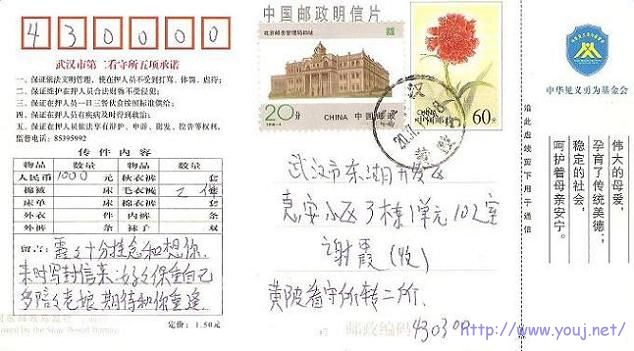 430000
武汉市第二看守所五项承诺
一、保证依法文明管理，使在押人员不受到打骂、体罚、虐待；
二、保证维护在押人员合法财物不受侵犯；
三、保证在押人员一日三餐伙食按照标准供给；
四、保证在押人员有疾病及时得到救治；
五、保证在押人员依法享有辩护、申诉、检举、控告等权利。
监督电话：85395992
传件内容
物品 数量 物品 数量
人民币 1000 元 秋衣裤 套
棉被 床 毛衣裤 2 件
床单 床 棉衣裤 套
外衣 件 内裤 条
外裤 条 袜子 双
留言：霞：十分挂念和想你，
来时写封信来：好好保重自己
多陪老娘 期待和你重逢
定价：1.50元
中国邮政明信片
20分
CHINA 中国邮政
中国邮政
60分
武汉市东湖开发区
惠安小区3栋1单元102室
谢霞（收）
黄陂看守所转二所
邮政编码 430300
沿此虚线剪下用于通信
中华见义勇为基金会
伟大的母爱，
孕育了传统美德；
稳定的社会，
呵护着母亲安宁。
http://www.youj.net/